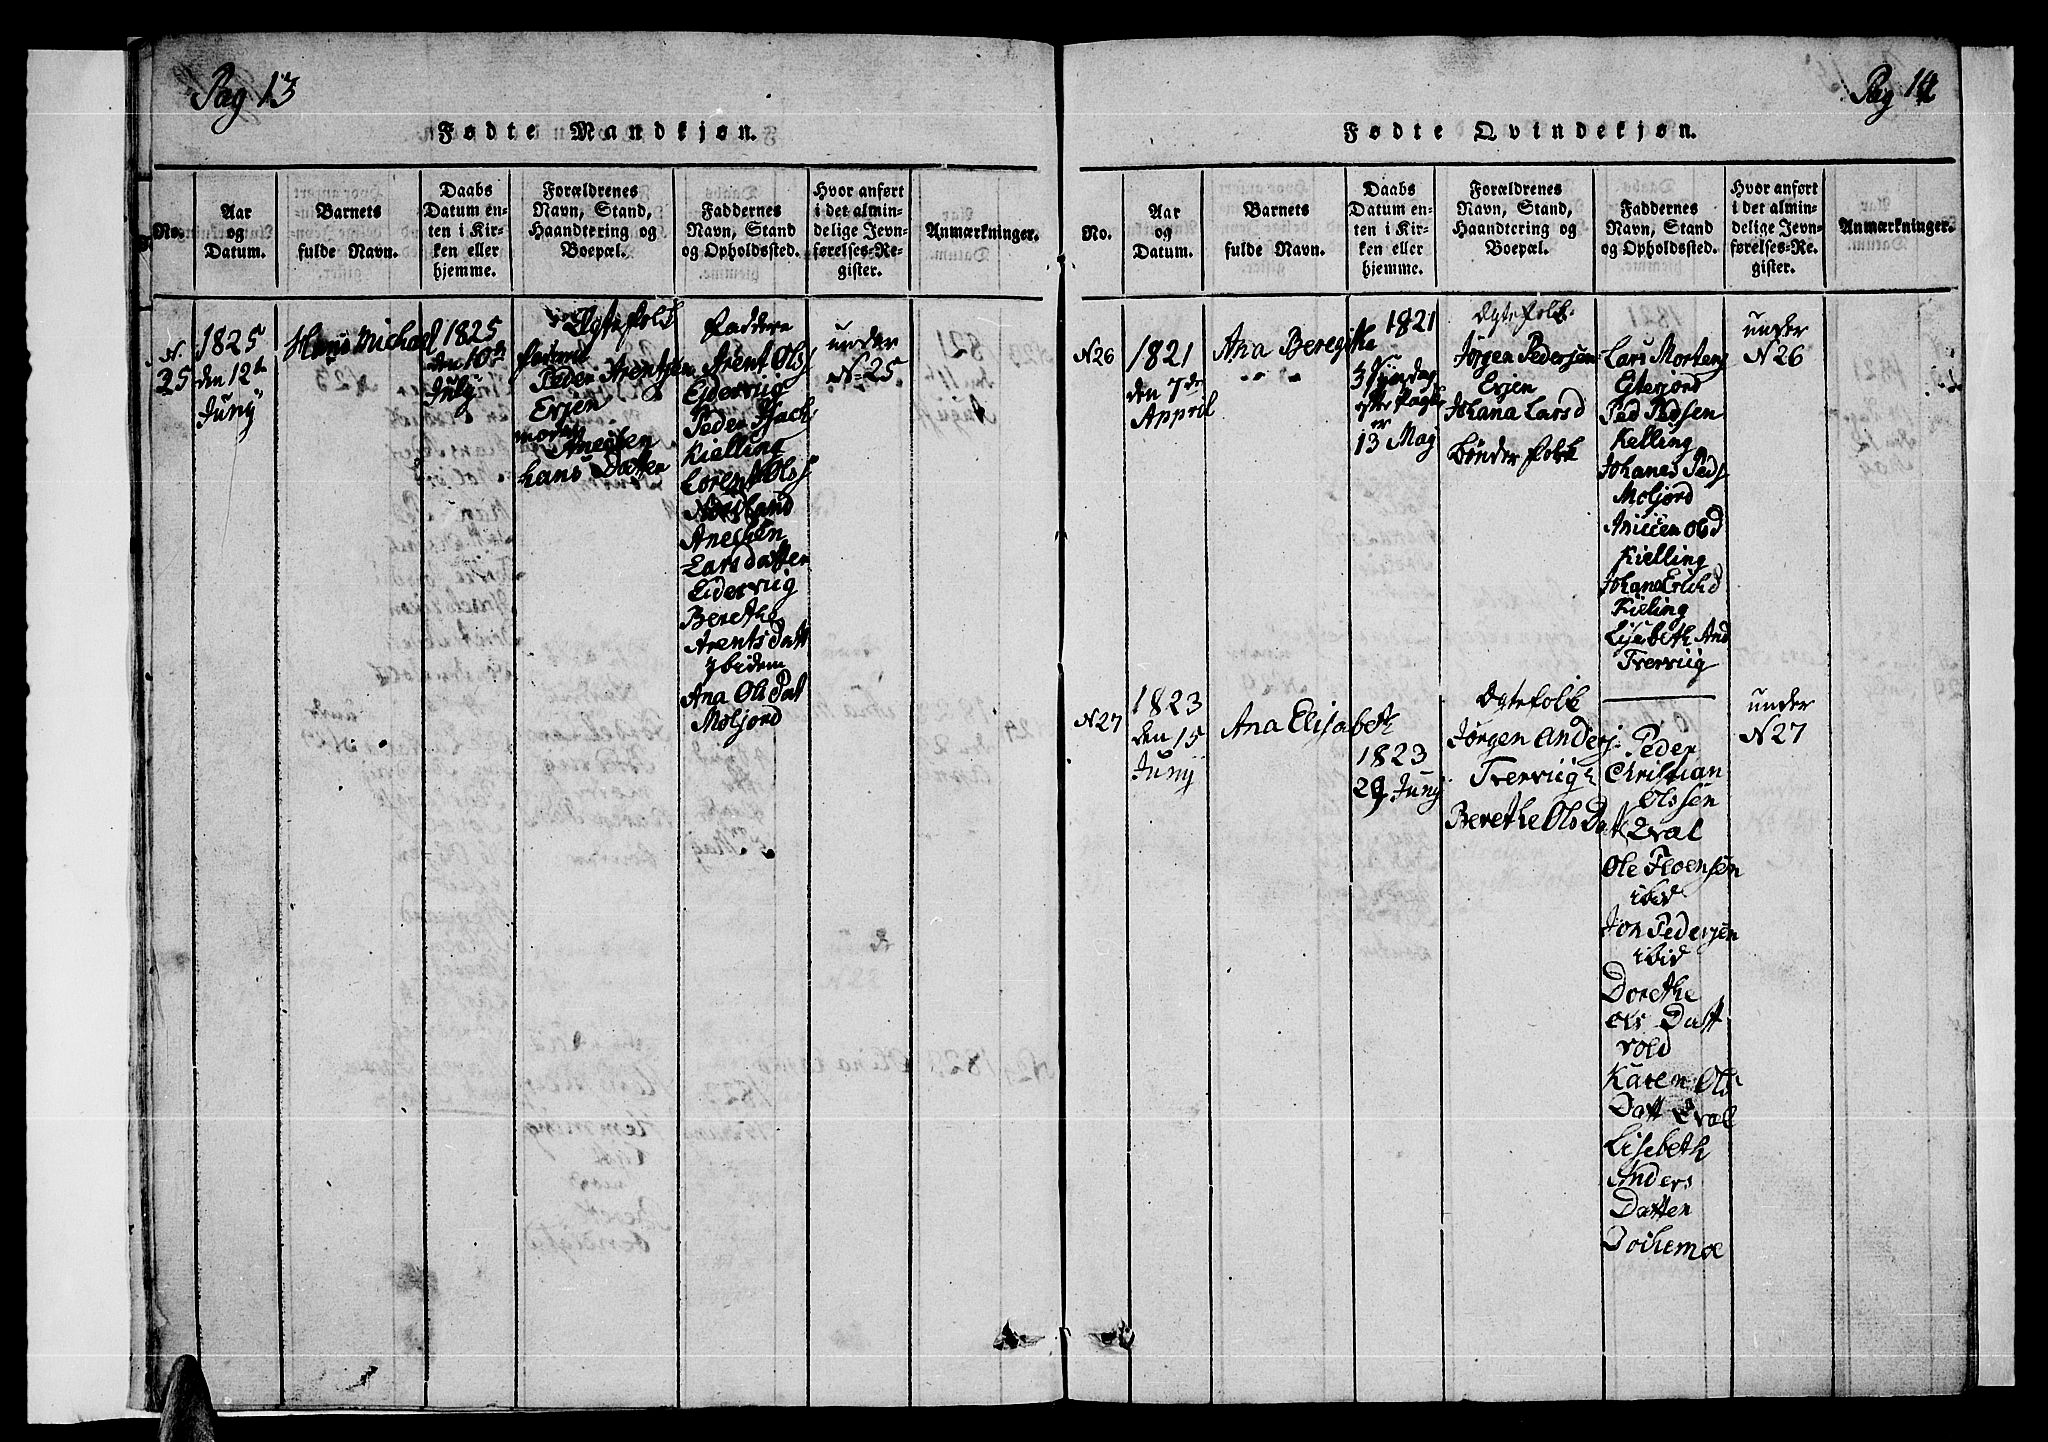 Pag 13
Fødte Mandkjøn.
No.
Aar
og
Datum.
Barnets
fulde Navn.
Daabs
Datum en-
ten i Kir-
ken eller
hjemme.
Forældrenes
Navn, Stand,
Haandtering og
Boepæl.
Faddernes
Navn, Stand
og Opholdssted.
Hvor anført
i det almin-
delige Jevn-
førelses-Re-
gister.
Anmærkninger.
N.
25
1825
den 12te
Junÿ
Hans Michael
1825
den 10de
Julÿ
Ægtefolk
Peder Arentsen
Evjen
moder
Anesen
Lars Datter
Faddere
Arent Ols
Eidevig
Peder Isach
Kielling
Lorent Ols
Nordland
Anesen
Larsdatter
Eidevig
Berethe
Arents Datt
ibidem
Ana Ols Datt
Moljord
under
N 25
Pag 14
Fødte Qvindekjøn.
No.
Aar
og
Datum.
Barnets
fulde Navn.
Daabs
Datum en-
ten i Kir-
ken eller
hjemme.
Forældrenes
Navn, Stand,
Haandtering og
Boepæl.
Faddernes
Navn, Stand
og Opholdssted.
Hvor anført
i det almin-
delige Jevn-
førelses-Re-
gister.
Anmærkninger.
N26
1821
den 7de
Appril
Ana Beregitha
1821
3 Syndag
efter
13 Maÿ
Ægtefolk
Jørgen Pedersen
Evjen
Johana Larsd
Bønder folk
Lars Mortens
Eiterjord
Ped Pedsen
Kelling
Johanes Peds
Moljord
Anicen Olsd
Kielling
Johana
Kieling
Lisebeth And
Tverviig
under
N26
N27
1823
den 15
Junÿ
Ana Elisabeth
1823
29 Junÿ
Ægtefolk
Jørgen Anders
Tverviig
Berethe Ols Datt
Peder
Christian
Olssen
Eval
Ole
ibid
Jon Pedersen
ibid
Dorethe
Datt
vold
Karen Ols
Datt Eval
Lisebeth
Anders
Datter
under
N27